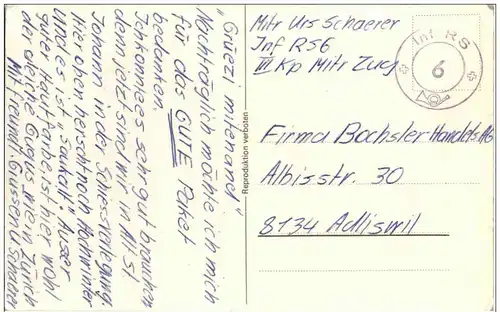 "Grüezi mitenand"
Nachträglich möchte ich mich
für das GUTE Paket
bedanken.
Ich konnte es sehr gut brauchen
denn jetzt sind wir in Alt St
Johann in der Schiessverlegung
Hier oben herrscht noch Hochwinter
und es ist "saukalt". Ausser
guter Hautfarbe ist hier wohl
der gleiche
wie in Zürich
Mit freundl. Grüssen U. Schaerer
Reproduktion verboten
Mitr Urs Schaerer
Inf RS6
III Kp Mitr Zug
Inf RS
6
Firma Bachsler Handels AG
Albisstr. 30
8134 Adliswil